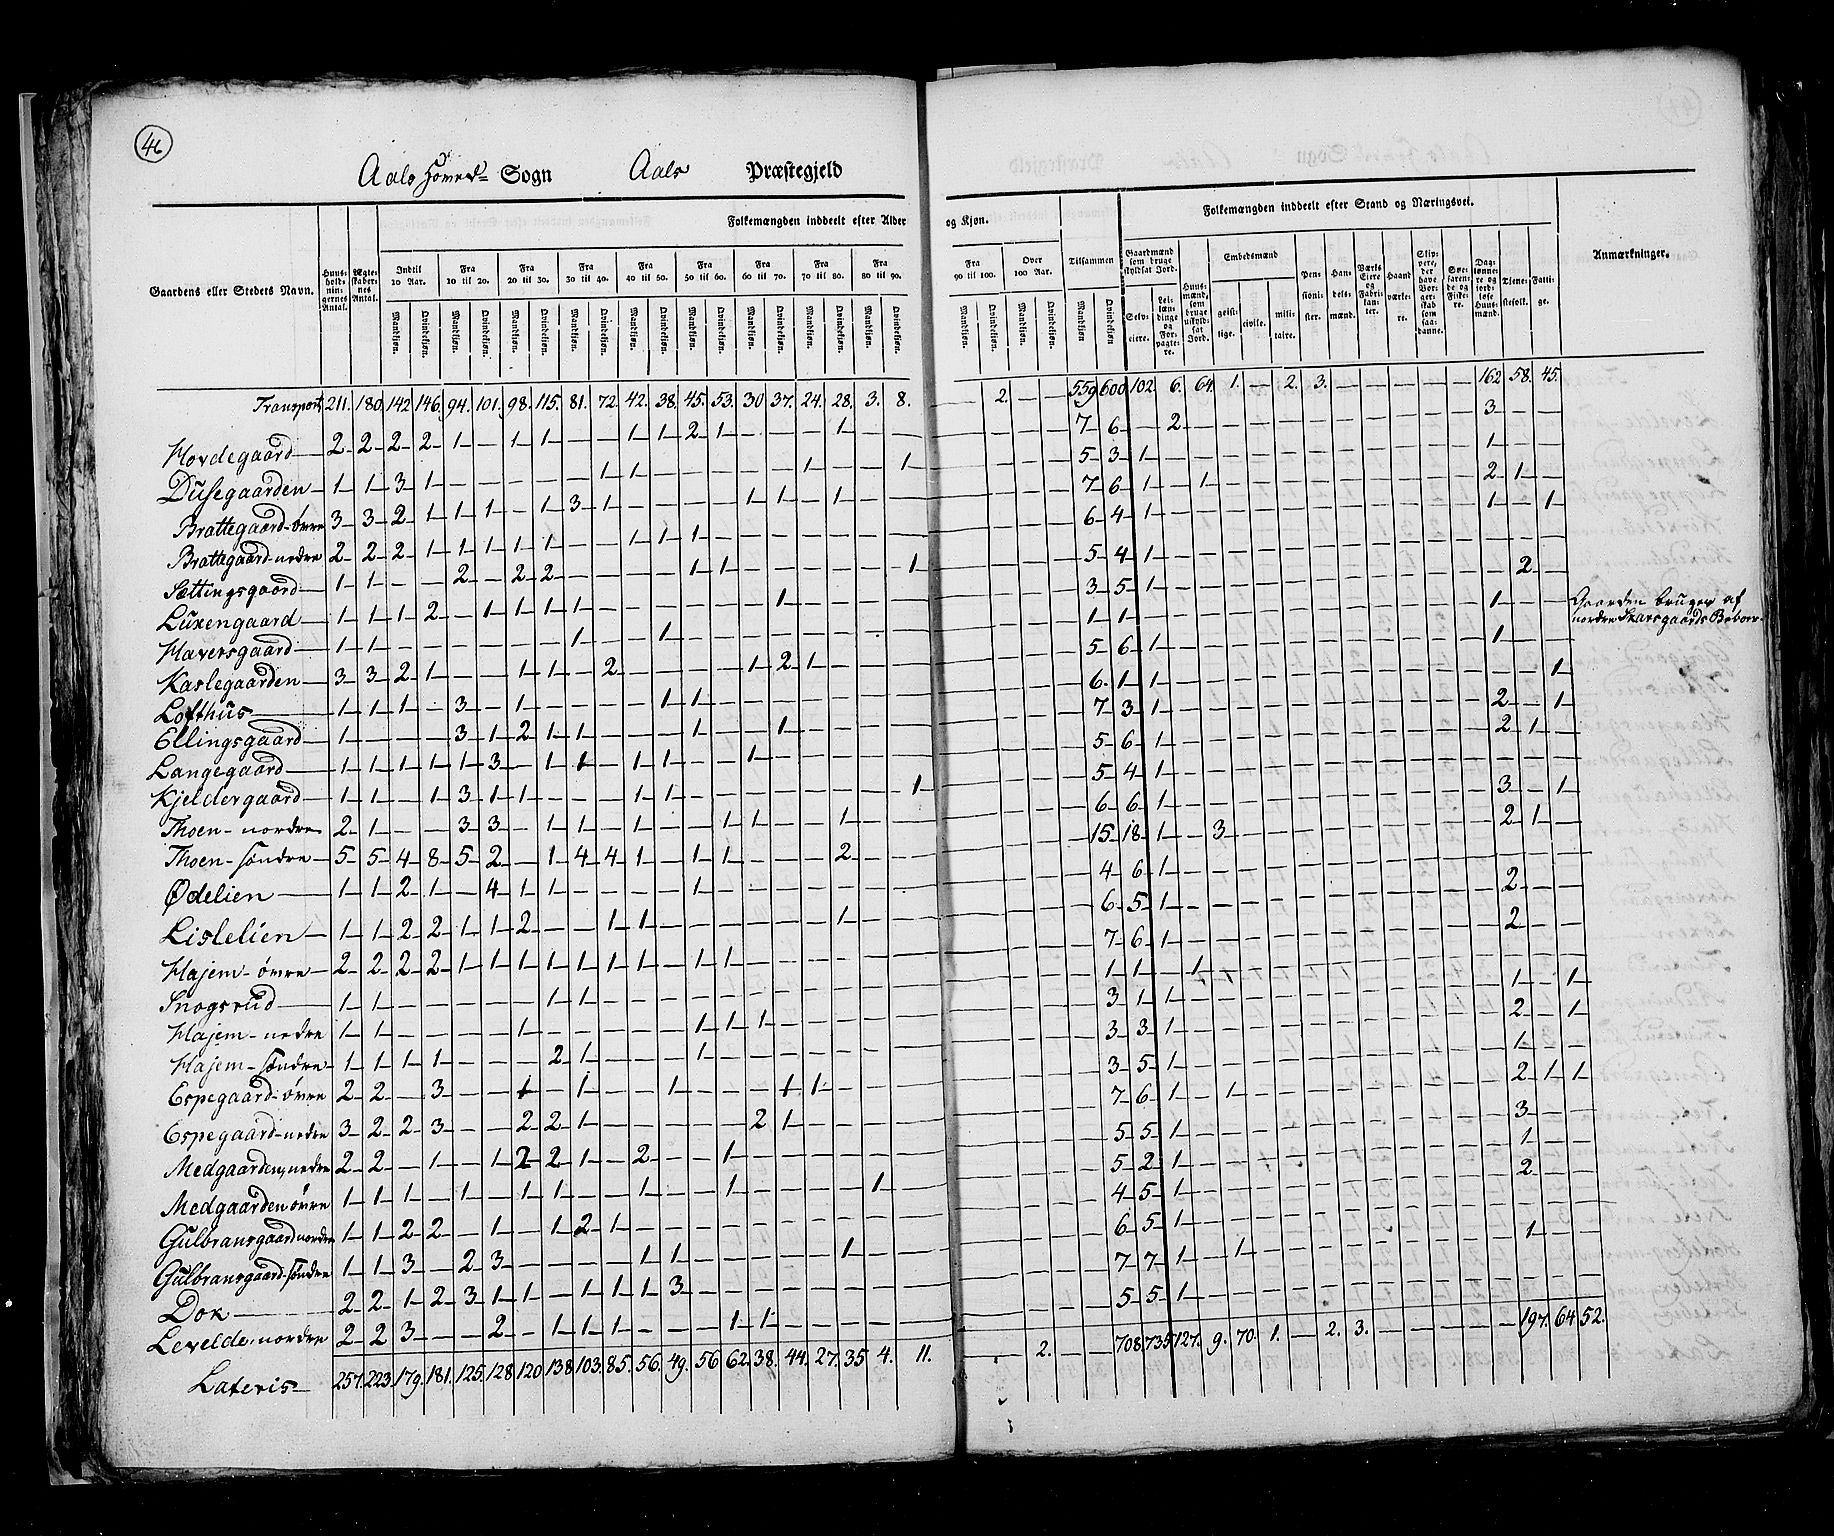 46
Aals Hoved= Sogn Aals Præstegjeld
Gaardens eller Stedets Navn.
Huus-holdnin-gernes Antal.
Ægte-skaber-nes Antal.
Folkemængden inddeelt efter Alder og Kjøn.
Indtil 10 Aar.
Fra 10 til 20.
Fra 20 til 30.
Fra 30 til 40.
Fra 40 til 50.
Fra 50 til 60.
Fra 60 til 70.
Fra 70 til 80.
Fra 80 til 90.
Fra 90 til 100.
Over 100 Aar.
Tilsammen
Mandkjøn. Qvindekjøn.
Folkemængden inddeelt efter Stand og Næringsvei.
Gaardmænd som bruge skyldsat Jord.
Selv-eiere.
Lei-læn-dinge og For-pagte-re.
Huus-mænd, som bruge uskyld-sat Jord.
Embedsmænd
geist-lige.
civile.
mili-taire.
Pen-sioni-ster.
Han-dels-mænd.
Værks Eiere og Fabri-kan-ter.
Haand værke-re.
Tjene-stefolk.
Fatti-ge.
Anmærkninger.
Transport 211. 180. 142. 146. 94. 101. 98. 115. 81. 72. 42. 38. 45. 53. 30 37. 24. 28. 3. 8. — 2. — — 559 600 102. 6. 64. 1. — 2. 3. — — — — — 162 58. 45.
Hovdegaard 2 2 2 2 1 — 1 1 — — 1 1 2 1 — — — 1 — — — — — — 7 6 — 2 — — — — — — — — — — 3 — —
Dusegaarden 1 1 3 1 — — — — — 1 1 — — — — — 1 — — 1 — — — — 5 3 1 — — — — — — — — — — — 1 — —
Brattegaard øvre 3 3 2 1 1 1 — 1 3 1 — — — — 1 1 — 1 — — — — — — 7 6 1 — 1 — — — — — — — — — 2 1 —
Brattegaard nedre 2 2 2 1 1 1 1 1 — — 1 1 1 — — — — — — — — — — — 6 4 1 — — — — — — — — — — — 1 — 1
Sættingsgaard 1 1 — — 2 — 2 2 — — — — 1 1 — — — — — 1 — — — — 5 4 1
Luxengaard 1 1 1 2 — 1 1 1 1 — — — — — — 1 — — — — — — — — 3 5 1 — — — — — — — — — — — — 2 —
Haversgaard 1 1 — — — — — — 1 — — 1 — — — — — — — — — — — — 1 1 — — — — — — — — — — — — 1 — — Gaarden bruges af nordre Skarsgaards Beboer.
Kaslegaarden 3 3 2 1 — — 1 1 — 2 — — — — 1 2 1 — — — — — — — 5 6 1 — — — — — — — — — — — 1 — —
Lofthus 1 1 1 — 3 — 1 — — — — 1 1 — — — — — — — — — — — 6 1 1 — — — — — — — — — — — — — 1
Ellingsgaard 1 — — — 3 1 2 1 1 — — — 1 — — 1 — — — — — — — — 7 3 1 — — — — — — — — — — — 2 — 1
Langegaard 1 1 1 1 1 3 — 1 1 — 1 1 — — 1 — — — — — — — — — 5 6 1 — — — — — — — — — — — 2 1 —
Kjeldergaard 1 1 — 1 3 1 1 — — — 1 1 — — — — — — — 1 — — — — 5 4 1
Thoen nordre 2 1 — — 3 3 — 1 1 — 1 — — 1 1 — — 1 — — — — — — 6 6 1 — — — — — — — — — — — 3 — 1
Thoen søndre 5 5 4 8 5 2 — 1 4 4 1 — 1 1 — — — 2 — — — — — — 15 18 1 — 3 — — — — — — — — — 2 1 —
Ødelien 1 1 2 1 — 4 1 1 — — — — 1 — — — — — — — — — — — 4 6 1
Lislelien 1 1 2 2 1 1 2 — — 1 1 — — — — — — 1 — — — — — — 6 5 1 — — — — — — — — — — — 2 — —
Hajem øvre 2 2 2 2 1 1 1 1 1 1 1 — 1 1 — — — — — — — — — — 7 6 1 — — — — — — — — — — — 2 — —
Snogsrud 1 1 — — — — — 1 1 — — — — — — — — — — — — — — — 1 1 — — 1
Hajem nedre 1 1 — — — — 1 — — — — — 1 1 1 — — — — — — — — — 3 1 1 — — — — — — — — — — — 1 — 1
Hajem søndre 1 1 1 1 — — — 2 1 — — — 1 — — — — — — — — — — — 3 3 1 — — — — — — — — — — — 2 — 1
Espegaard øvre 2 2 — 3 — — 1 — 1 — — 1 — — — 1 1 — — — — — — — 3 5 1 — — — — — — — — — — — 1 — —
Espegaard nedre 3 2 2 3 — — 2 2 1 — — — — — 2 1 — — — — — — — — 7 6 1 — 1 — — — — — — — — — 2 1 1
Medgaarden nedre 2 2 — 1 — 1 2 2 1 — 2 — — 1 — — — — — — — — — — 5 5 1 — — — — — — — — — — — 3 — —
Medgaarden øvre 1 1 1 — 1 — 1 1 — — 1 — — 1 — — — — 1 — — — — — 5 2 1 — — — — — — — — — — — 1 — —
Gulbransgaard nordre 1 1 2 2 — 1 — 1 2 1 — — — — — — — — — — — — — — 4 5 1 — — — — — — — — — — — 2 — —
Gulbransgaard søndre 1 1 3 — 2 3 — — — — 1 1 — — — — — 1 — — — — — — 6 5 1
Dok 2 2 1 2 3 1 1 — 1 1 1 3 — — — — — — — — — — — — 7 7 1 — 1 — — — — — — — — — 1 — —
Levelde nordre 2 2 3 — — 2 — 1 1 1 — — — 1 1 — — — — — — — — — 5 5 1
Lateris 257. 223. 179. 181. 125. 128 120 138 103. 85. 56. 49. 56 62. 38. 44. 27. 35 4. 11. — 2. — — 708 735 127. 9. 70. 1. — 2. 3. — — — — — 197. 64 52.